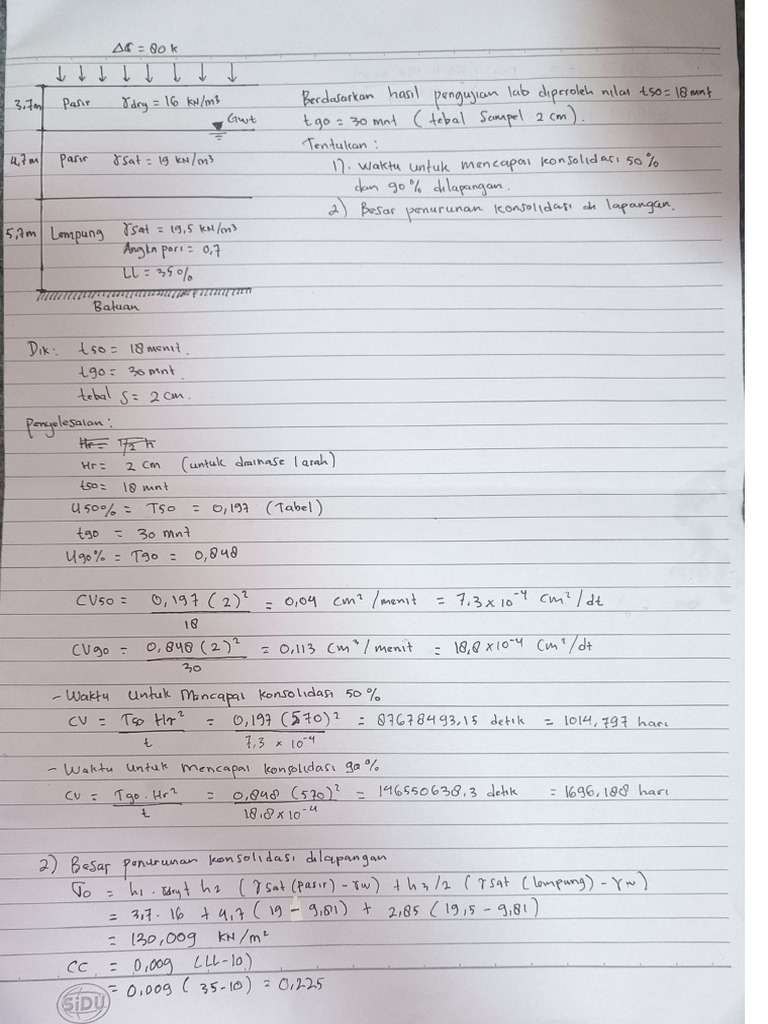 Δσ = 80 k
3,7m Pasir γdry = 16 KN/m³
Gwt
4,7m Pasir γsat = 19 KN/m³
5,7m Lempung γsat = 19,5 KN/m³
Angka pori = 0,7
LL = 35%
Batuan
Berdasarkan hasil pengujian lab diperoleh nilai t50 = 18 mnt
t90 = 30 mnt ( tebal Sampel 2 cm ).
Tentukan :
1). Waktu untuk mencapai konsolidasi 50%
dan 90% dilapangan.
2) Besar penurunan konsolidasi di lapangan.
Dik : t50 = 18 menit.
t90 = 30 mnt.
tebal S = 2 cm.
Penyelesaian :
Hr = 1/2 h
Hr = 2 cm (untuk drainase 1 arah)
t50 = 18 mnt
U50% = T50 = 0,197 (Tabel)
t90 = 30 mnt
U90% = T90 = 0,848
CV50 = 0,197 (2)² / 18 = 0,04 cm²/menit = 7.3 x 10⁻⁴ cm²/dt
CV90 = 0,848 (2)² / 30 = 0,113 cm³/menit = 18,8 x 10⁻⁴ cm²/dt
- Waktu untuk Mencapai Konsolidasi 50%
CV = T50 Hr² / t = 0,197 (570)² / 7,3 x 10⁻⁴ = 87678493,15 detik = 1014,797 hari
- Waktu Untuk Mencapai konsolidasi 90%
CV = T90 . Hr² / t = 0,848 (570)² / 18,8 x 10⁻⁴ = 146550638,3 detik = 1696,188 hari
2) Besar penurunan konsolidasi dilapangan
σo = h1 . γdry + h2 ( γsat (pasir) - γw ) + h3/2 ( γsat (lempung) - γw )
= 3,7 . 16 + 4,7 ( 19 - 9,81 ) + 2,85 ( 19,5 - 9,81 )
= 130,009 KN/m²
CC = 0,009 (LL-10)
= 0,009 ( 35-10 ) = 0,225
SiDU